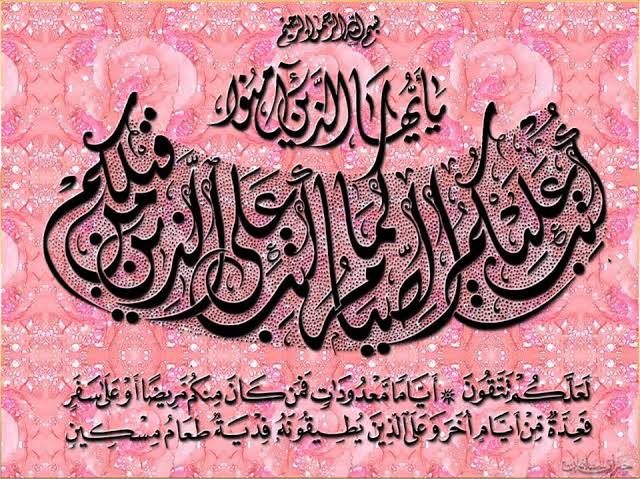 بسم الله الرحمن الرحيم
يَا أَيُّهَا الَّذِينَ آمَنُوا
كُتِبَ عَلَيْكُمُ الصِّيَامُ كَمَا كُتِبَ عَلَى الَّذِينَ مِن قَبْلِكُمْ
لَعَلَّكُمْ تَتَّقُونَ * أَيَّامًا مَعْدُودَاتٍ فَمَن كَانَ مِنكُم مَرِيضًا أَوْ عَلَى سَفَرٍ
فَعِدَّةٌ مِّنْ أَيَّامٍ أُخَرَ وَعَلَى الَّذِينَ يُطِيقُونَهُ فِدْيَةٌ طَعَامُ مِسْكِينٍ